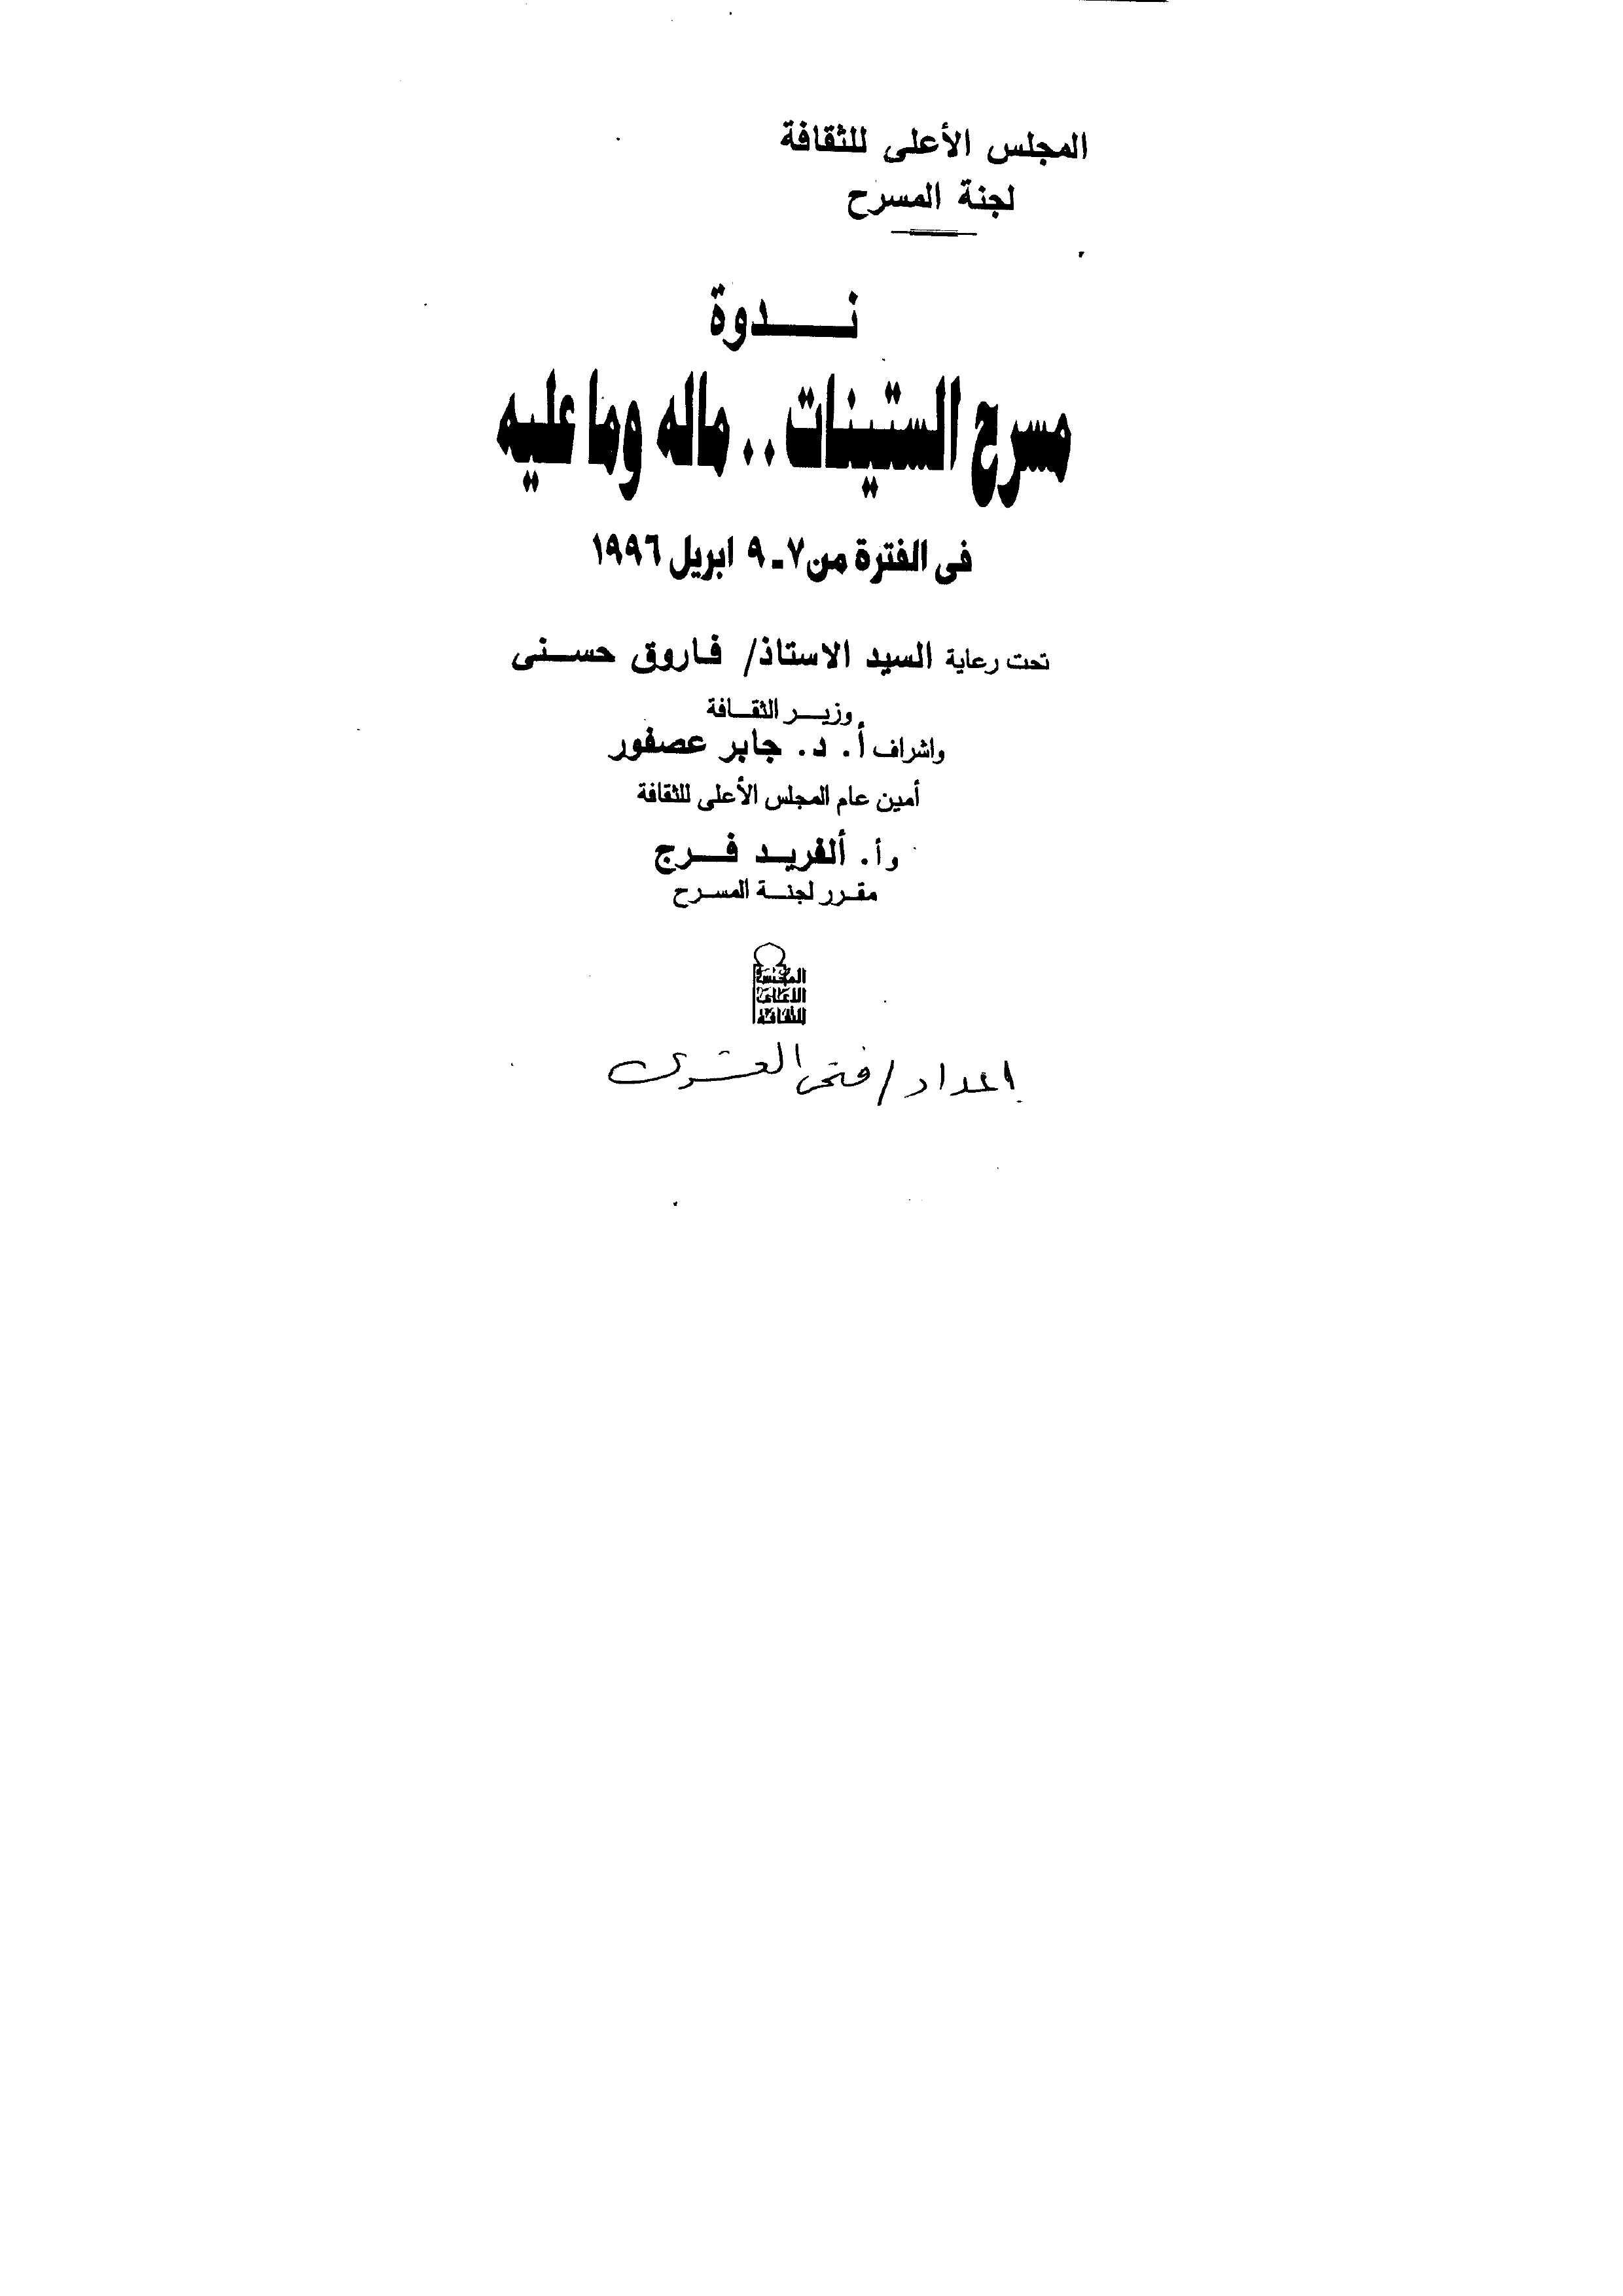 المجلس الأعلى للثقافة
لجنة المسرح
نـــدوة
مسرح الستينات . . ماله وما عليه
فى الفترة من ٧ ـ ٩ ابريل ١٩٩٦
تحت رعاية السيد الاستاذ/ فـاروق حســنى
وزيــر الثقــافة
واشراف أ. د. جابر عصفور
أمين عام المجلس الأعلى للثقافة
وأ. ألفريــد فــرج
مقـرر لجنــة المسـرح
المجلس
الاعلى
للثقافة
اعداد / فتحى العشرى